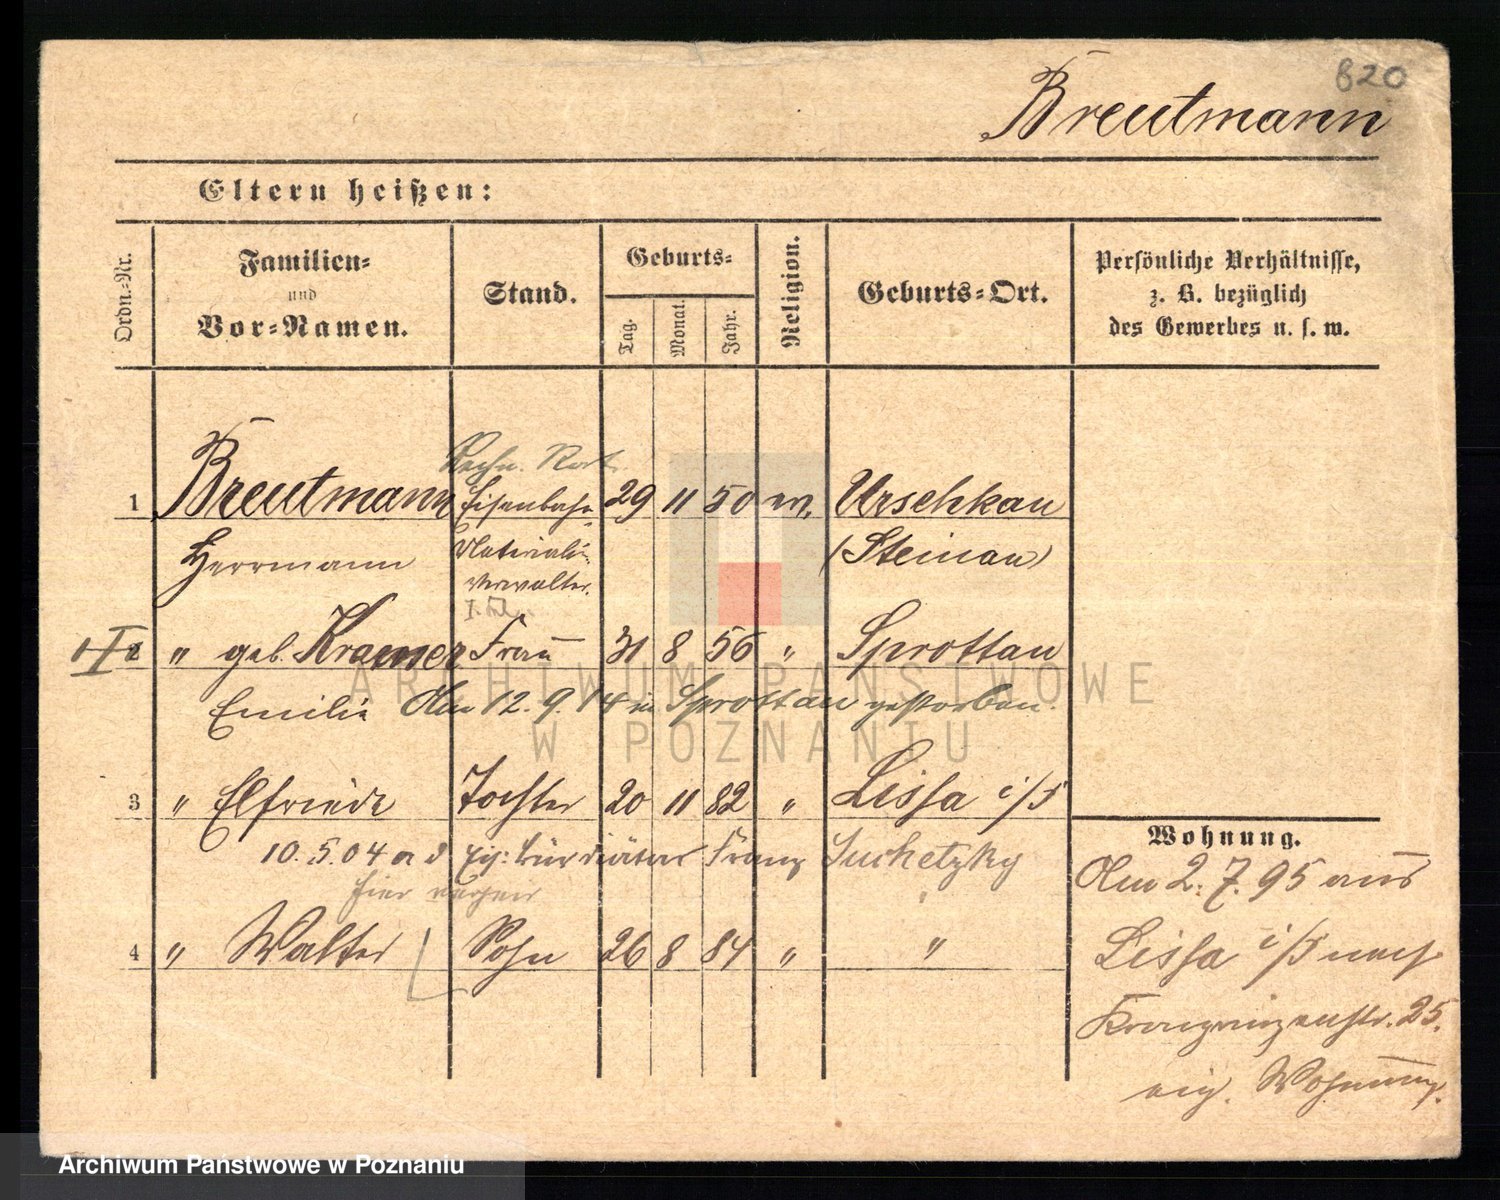 820
Breutmann
Eltern heißen:
Ordn.-Nr.
Familien-
und
Vor-Namen.
Stand.
Geburts-
Tag.
Monat.
Jahr.
Religion.
Geburts-Ort.
Persönliche Verhältnisse,
z. B. bezüglich
des Gewerbes u. s. w.
Rechn. Rat
1 Breutmann Eisenbahn 29 11 50 Urschkau
Herrmann Materialien- (Steinau)
verwalter.
2 " geb. Kramer Frau 31 8 56 " Sprottau
Emilie Am 12.9.14 in Sprottau gestorben.
3 " Elfriede Tochter 20 11 82 " Lissa i/P
10.5.04 Franz Suchetzky
hier
4 " Walter Sohn 26 8 84 " "
Wohnung.
Am 2.7.95 aus
Lissa i/P nach
Kronprinzenstr. 25.
eig. Wohnung.
ARCHIWUM PAŃSTWOWE
W POZNANIU
Archiwum Państwowe w Poznaniu